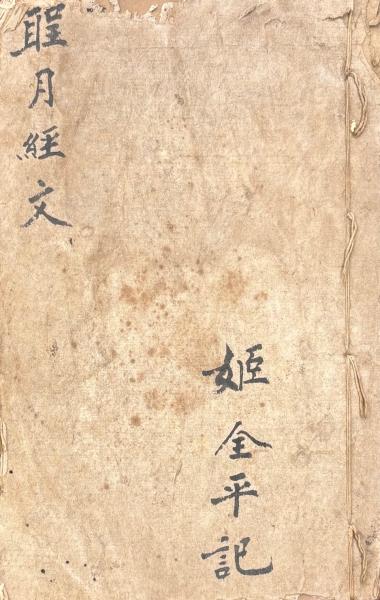 聖月經文
姬全平記